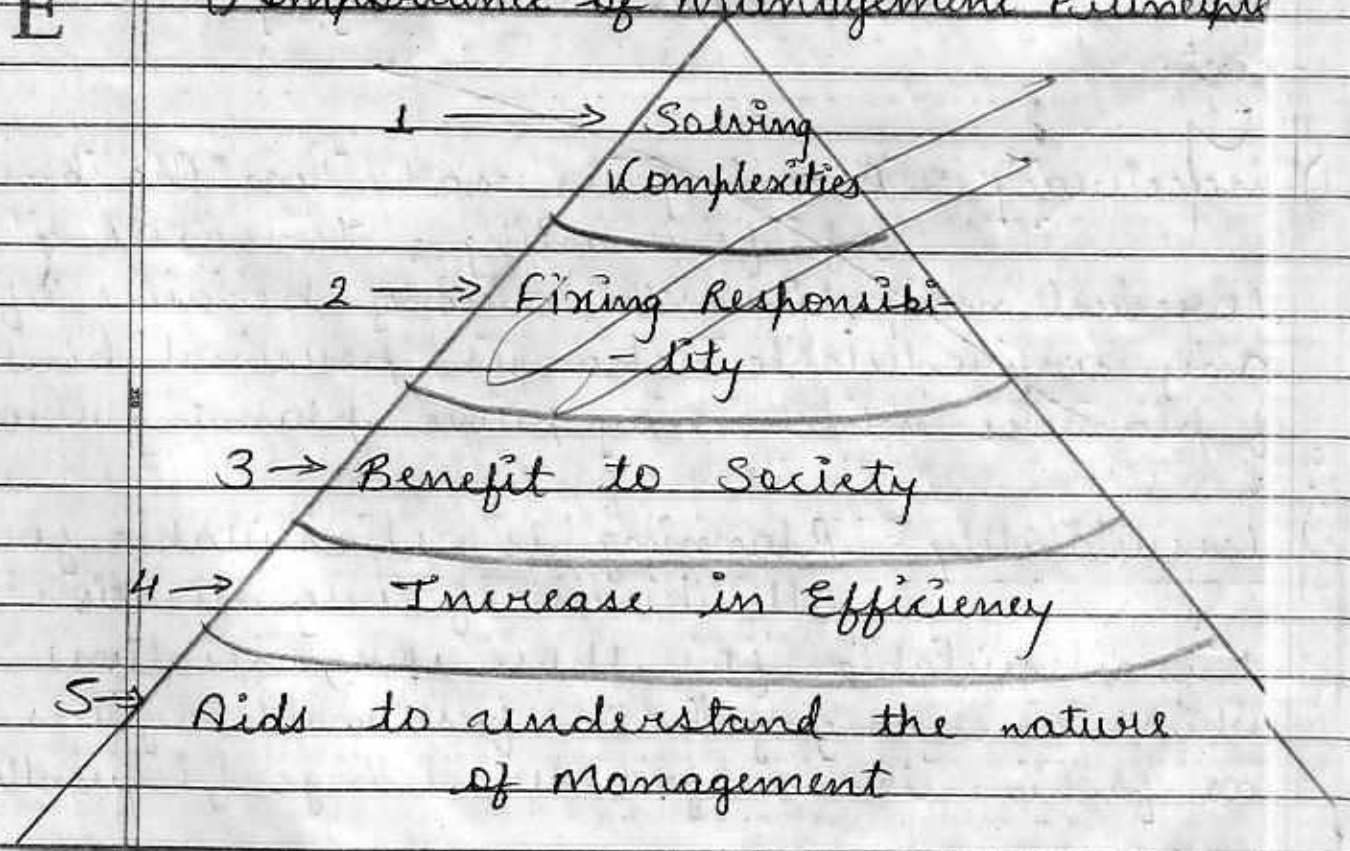 E
Importance of Management Principle
1 → Solving
Complexities
2 → Fixing Responsibi-
- lity
3 → Benefit to Society
4 → Increase in Efficiency
5 → Aids to understand the nature
of Management